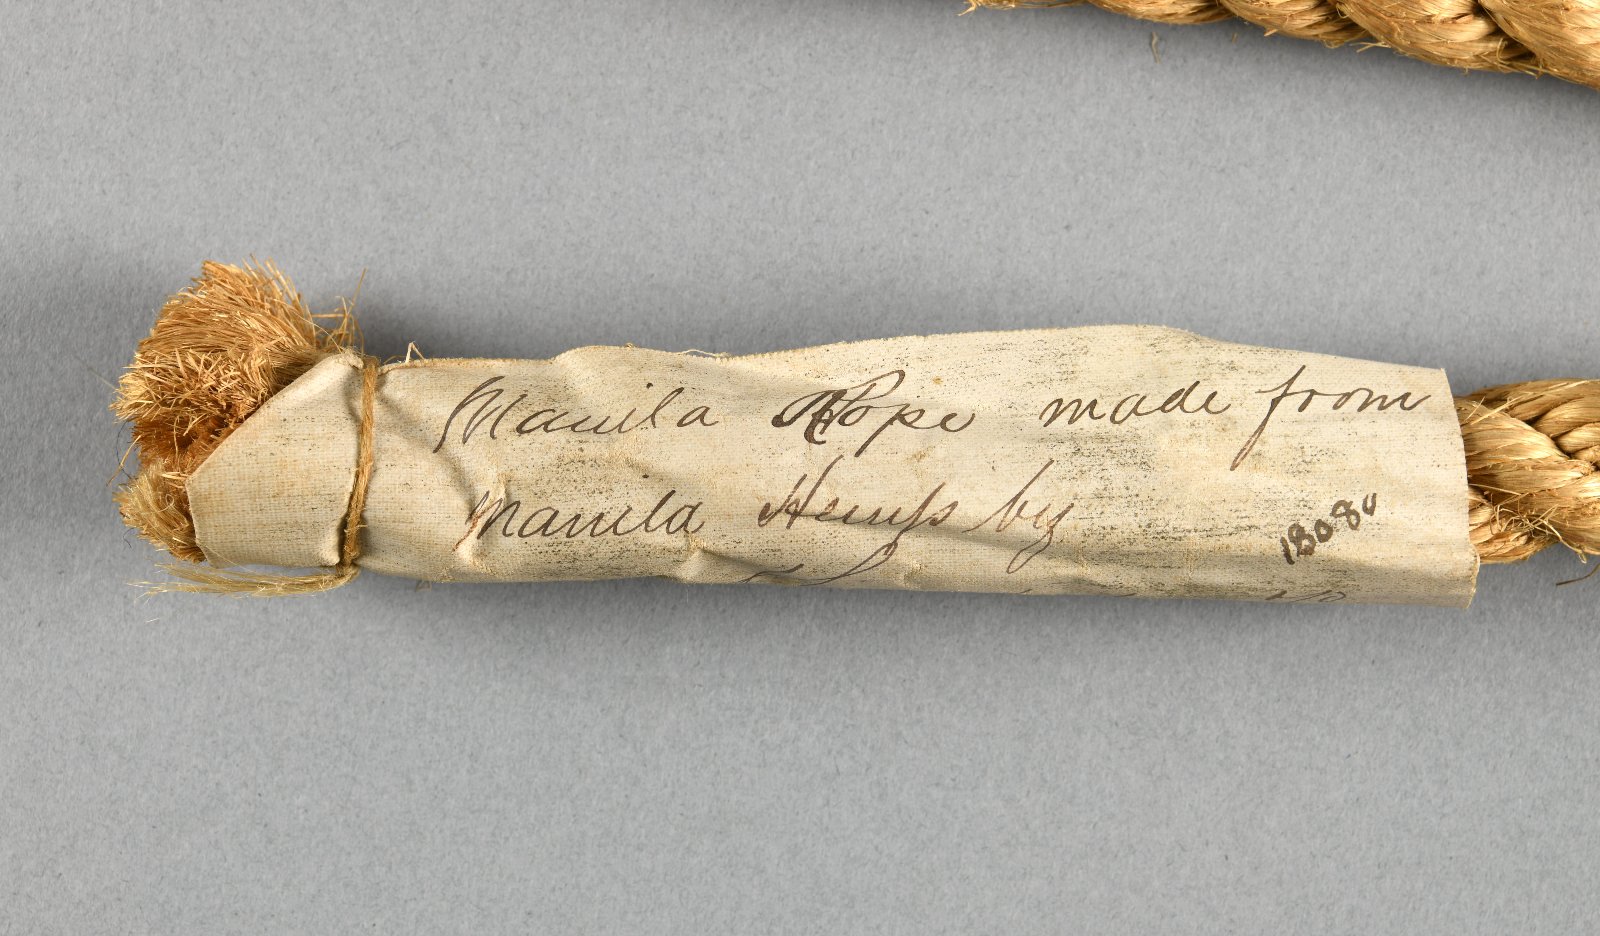 Manila Rope made from
Manila Hemp by
18080